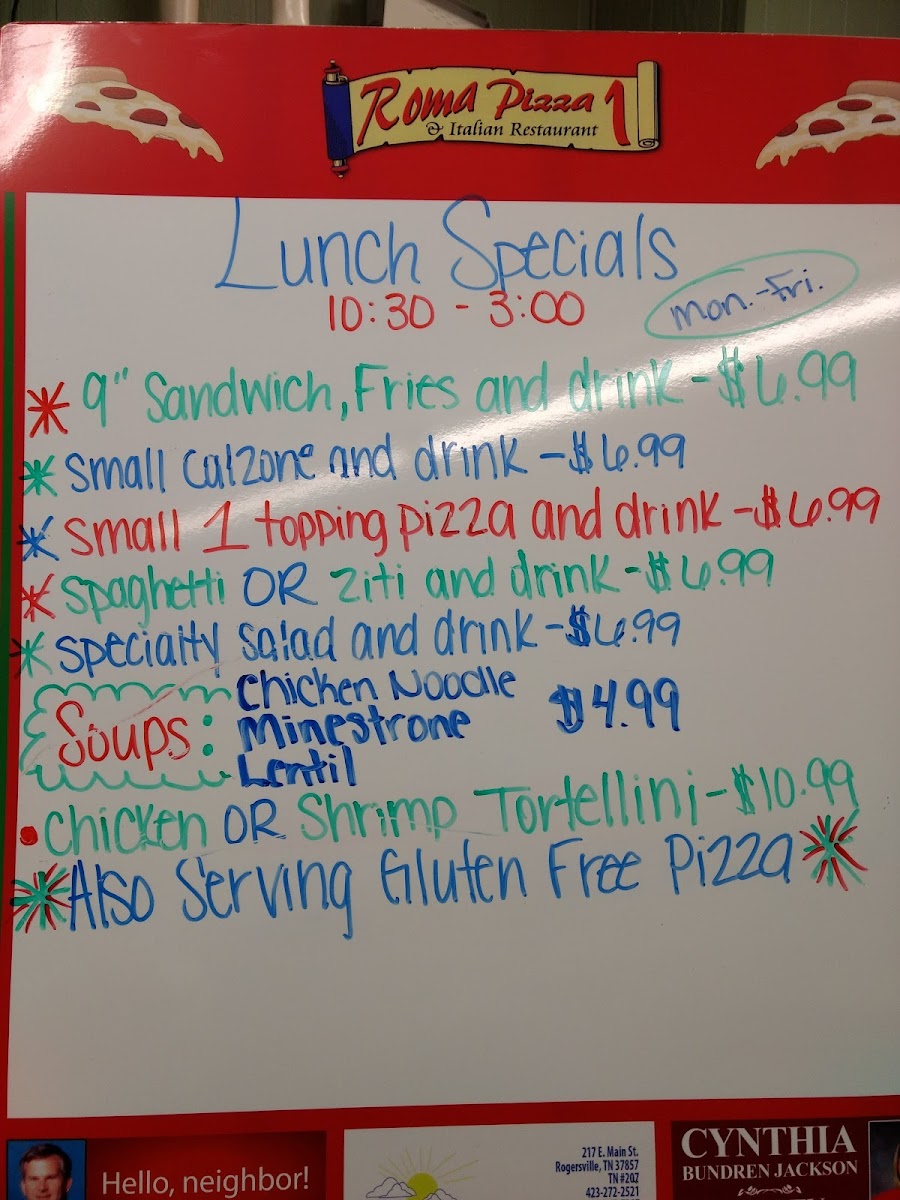 Roma Pizza 1
& Italian Restaurant
Lunch Specials
10:30 - 3:00
Mon.-Fri.
9" Sandwich, Fries and drink - $6.99
Small Calzone and drink - $6.99
Small 1 topping pizza and drink - $6.99
Spaghetti OR Ziti and drink - $6.99
Specialty Salad and drink - $6.99
Soups:
Chicken Noodle
Minestrone
Lentil
$4.99
Chicken OR Shrimp Tortellini - $10.99
Also Serving Gluten Free Pizza
Hello, neighbor!
217 E. Main St.
Rogersville, TN 37857
TN #202
423-272-2521
CYNTHIA
BUNDREN JACKSON